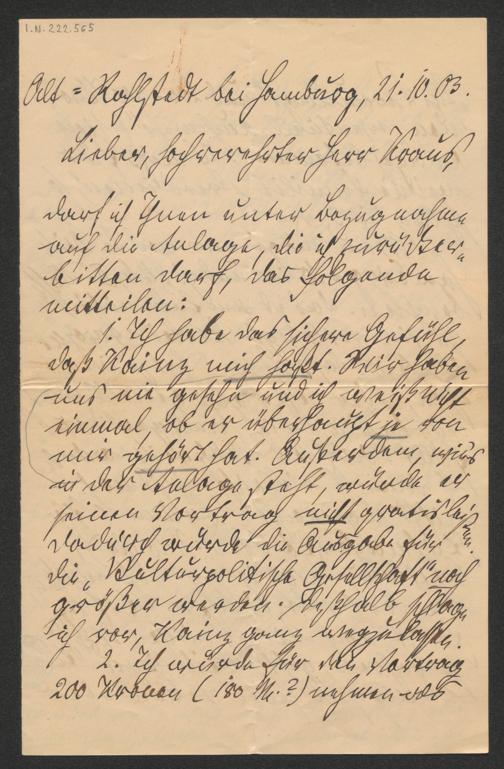 I.N. 222.565
Alt=Rahlstedt bei Hamburg, 21.10.03.
Lieber, hochverehrter Herr Kraus,
darf ich Ihnen unter Bezugnahme
auf die Anlage, die ich zurücker-
bitten darf, das Folgende
mitteilen:
1. Ich habe das sichere Gefühl,
daß Kainz mich haßt. Wir haben
uns nie gesehn und ich weiß nicht
einmal, ob er überhaupt je von
mir gehört hat. Außerdem,
in der Anlage steht, würde er
seinen Vortrag nicht gratis leisten.
Dadurch würde die Ausgabe für
die „Kulturpolitische Gesellschaft" noch
größer werden. Deßhalb schlage
ich vor, Kainz ganz wegzulassen.
2. Ich würde für den Vortrag
200 Kronen (180 M.?) nehmen